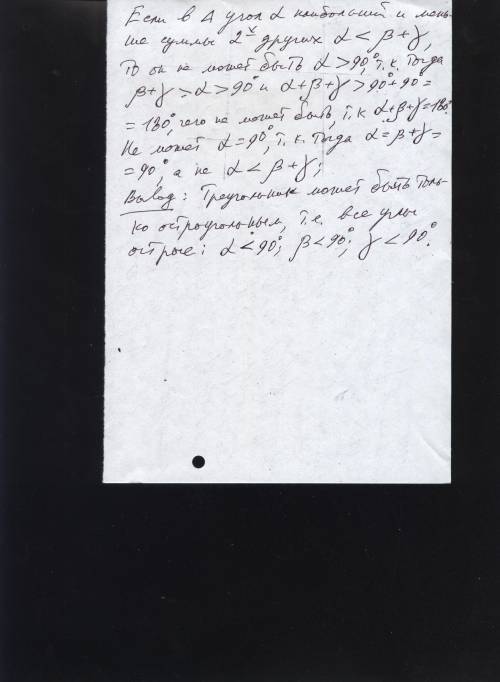 Если в Δ угол α наибольший и мень-
ше суммы 2х других α < β + γ,
то он не может быть α > 90°, т.к. тогда
β+γ > α > 90° и α+β+γ > 90°+90° =
= 180°, чего не может быть, т.к. α+β+γ=180°.
Не может α = 90°, т.к. тогда α = β+γ =
= 90°, а не α < β + γ;
Вывод: Треугольник может быть толь-
ко остроугольным, т.е. все углы
острые: α < 90°; β < 90°; γ < 90°.